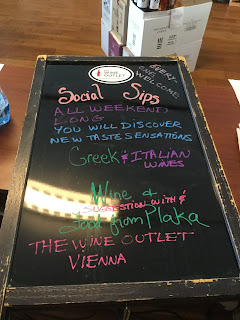 THE WINE OUTLET
EVERY
ONE
WELCOME
Social Sips
ALL WEEKEND
LONG
YOU WILL DISCOVER
NEW TASTE SENSATIONS
Greek & ITALIAN
WINES
Wine &
SUGGESTION WITH &
Food from Plaka
THE WINE OUTLET
VIENNA